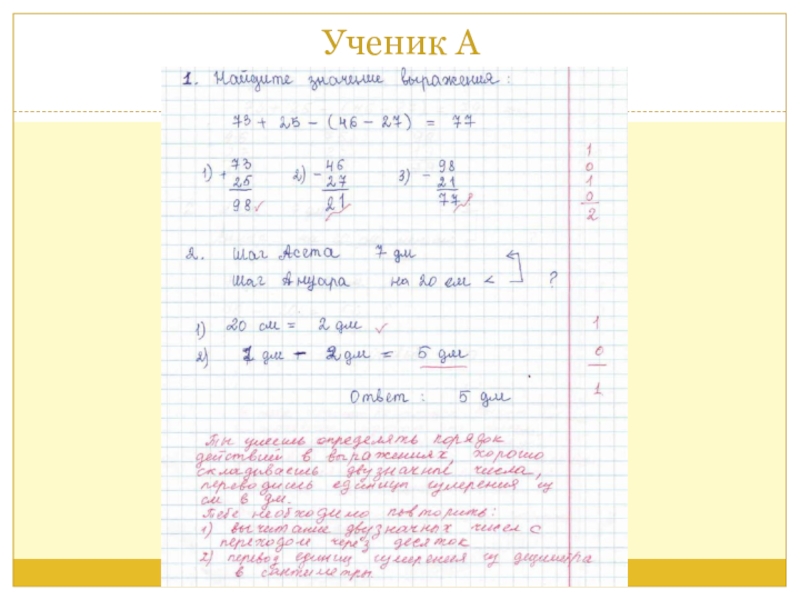 Ученик А
1. Найдите значение выражения:
73 + 25 - (46 - 27) = 77
1) + 73 2) - 46 3) - 98
25 27 21
98 21 77
1
0
1
0
2
2. Шаг Асета 7 дм
Шаг Ануара на 20 см < ?
1) 20 см = 2 дм 1
2) 7 дм - 2 дм = 5 дм 0
1
Ответ: 5 дм
Ты умеешь определять порядок
действий в выражениях, хорошо
складываешь двузначные числа,
переводишь единицы измерения из
см в дм.
Тебе необходимо повторить:
1) вычитание двузначных чисел с
переходом через десяток
2) перевод единиц измерения из дециметра
в сантиметры.